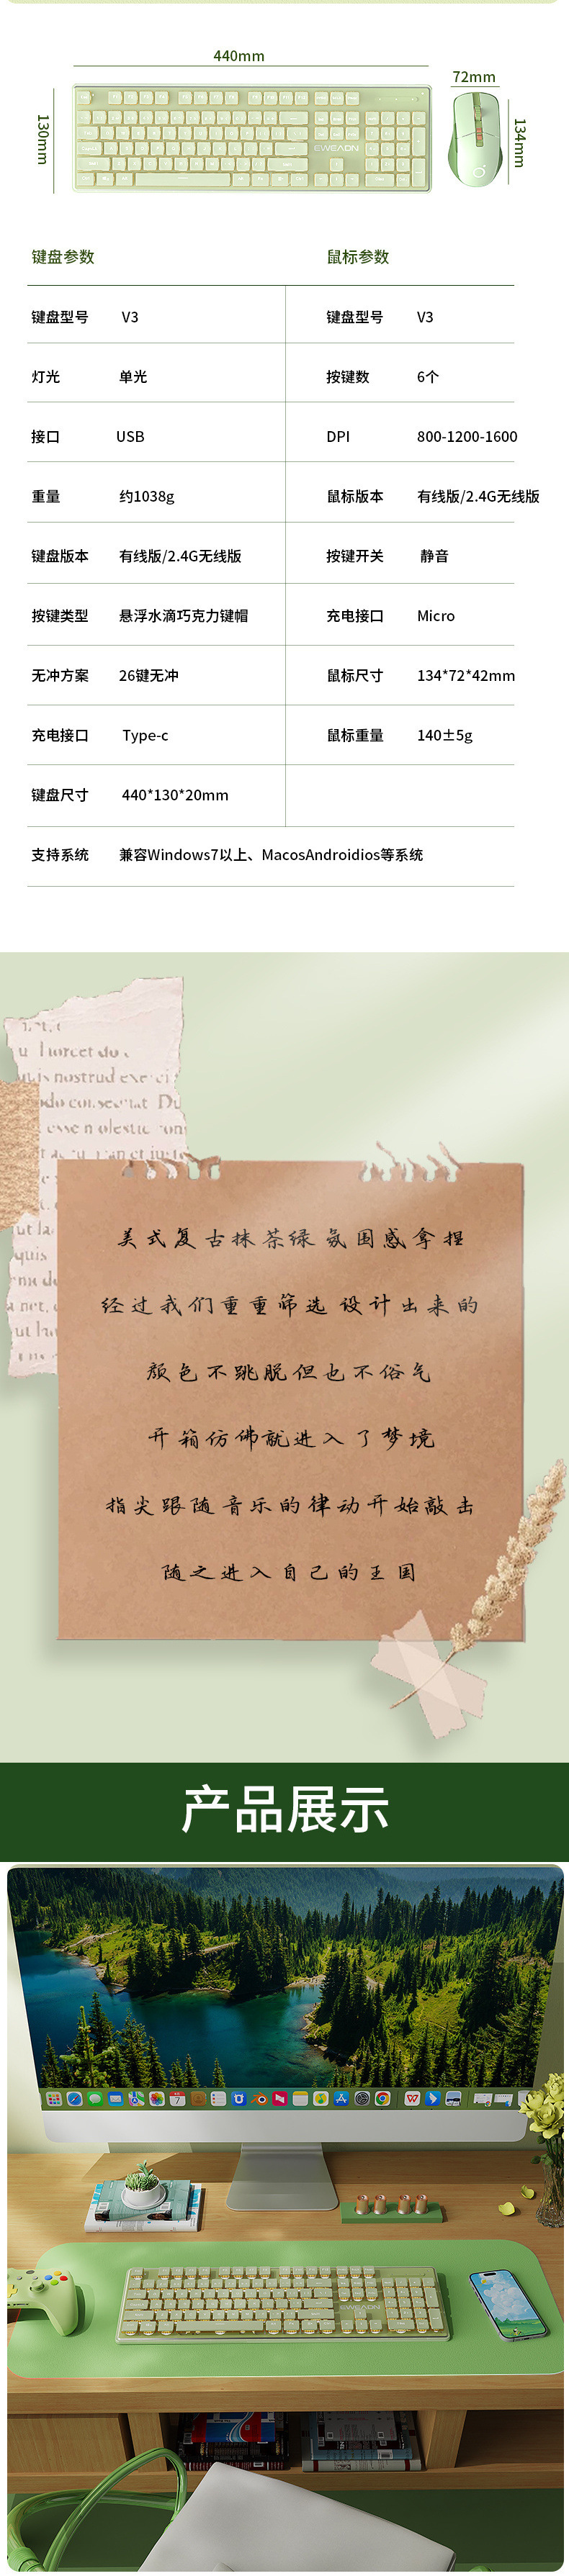 440mm
72mm
130mm
134mm
EWEADN
键盘参数 鼠标参数
键盘型号 V3 键盘型号 V3
灯光 单光 按键数 6个
接口 USB DPI 800-1200-1600
重量 约1038g 鼠标版本 有线版/2.4G无线版
键盘版本 有线版/2.4G无线版 按键开关 静音
按键类型 悬浮水滴巧克力键帽 充电接口 Micro
无冲方案 26键无冲 鼠标尺寸 134*72*42mm
充电接口 Type-c 鼠标重量 140±5g
键盘尺寸 440*130*20mm
支持系统 兼容Windows7以上、MacosAndroidios等系统
美式复古抹茶绿氛围感拿捏
经过我们重重筛选设计出来的
颜色不跳脱但也不俗气
开箱仿佛就进入了梦境
指尖跟随音乐的律动开始敲击
随之进入自己的王国
产品展示
EWEADN